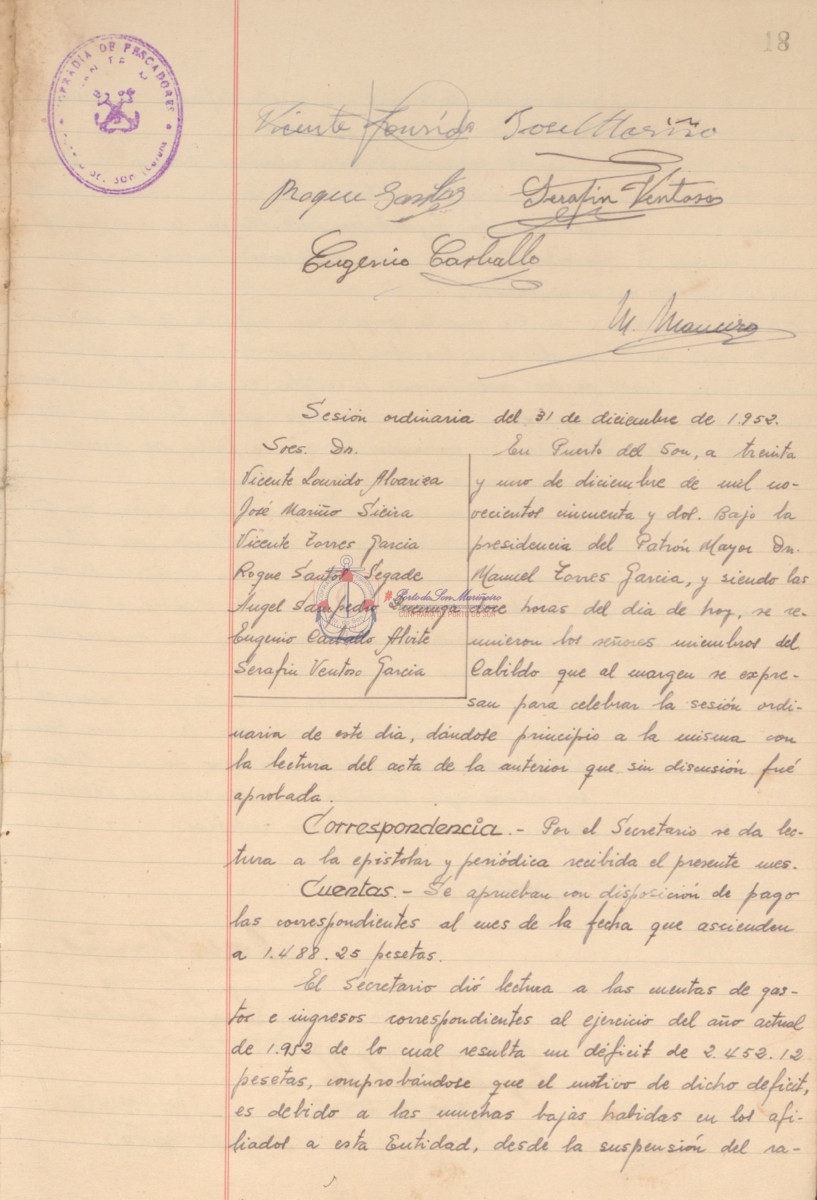 18
COFRADIA DE PESCADORES
Vicente Lourido José Mariño
Roque Santos Serafin Ventoso
Eugenio Carballo
M. Maneiro
Sesión ordinaria del 31 de diciembre de 1.952.
Sres. Dn.
Vicente Lourido Alvariza
José Mariño Sieira
Vicente Torres Garcia
Roque Santos Segade
Ángel Sampedro
Eugenio Carballo Alvite
Serafin Ventoso Garcia
En Puerto del Son, a treinta
y uno de diciembre de mil no-
vecientos cincuenta y dos. Bajo la
presidencia del Patrón Mayor Dn.
Manuel Torres Garcia, y siendo las
doce horas del dia de hoy, se re-
unieron los señores miembros del
Cabildo que al margen se expre-
san para celebrar la sesión ordi-
naria de este dia, dándose principio a la misma con
la lectura del acta de la anterior que sin discusión fué
aprobada.
Correspondencia.- Por el Secretario se da lec-
tura a la epistolar y periódica recibida el presente mes.
Cuentas.- Se aprueban con disposición de pago
las correspondientes al mes de la fecha que ascienden
a 1.488.25 pesetas.
El Secretario dió lectura a las cuentas de gas-
tos e ingresos correspondientes al ejercicio del año actual
de 1.952 de lo cual resulta un déficit de 2.452.12
pesetas, comprobándose que el motivo de dicho déficit,
es debido a las muchas bajas habidas en los afi-
liados a esta Entidad, desde la suspensión del ra-
Porto do Son Mariñeiro